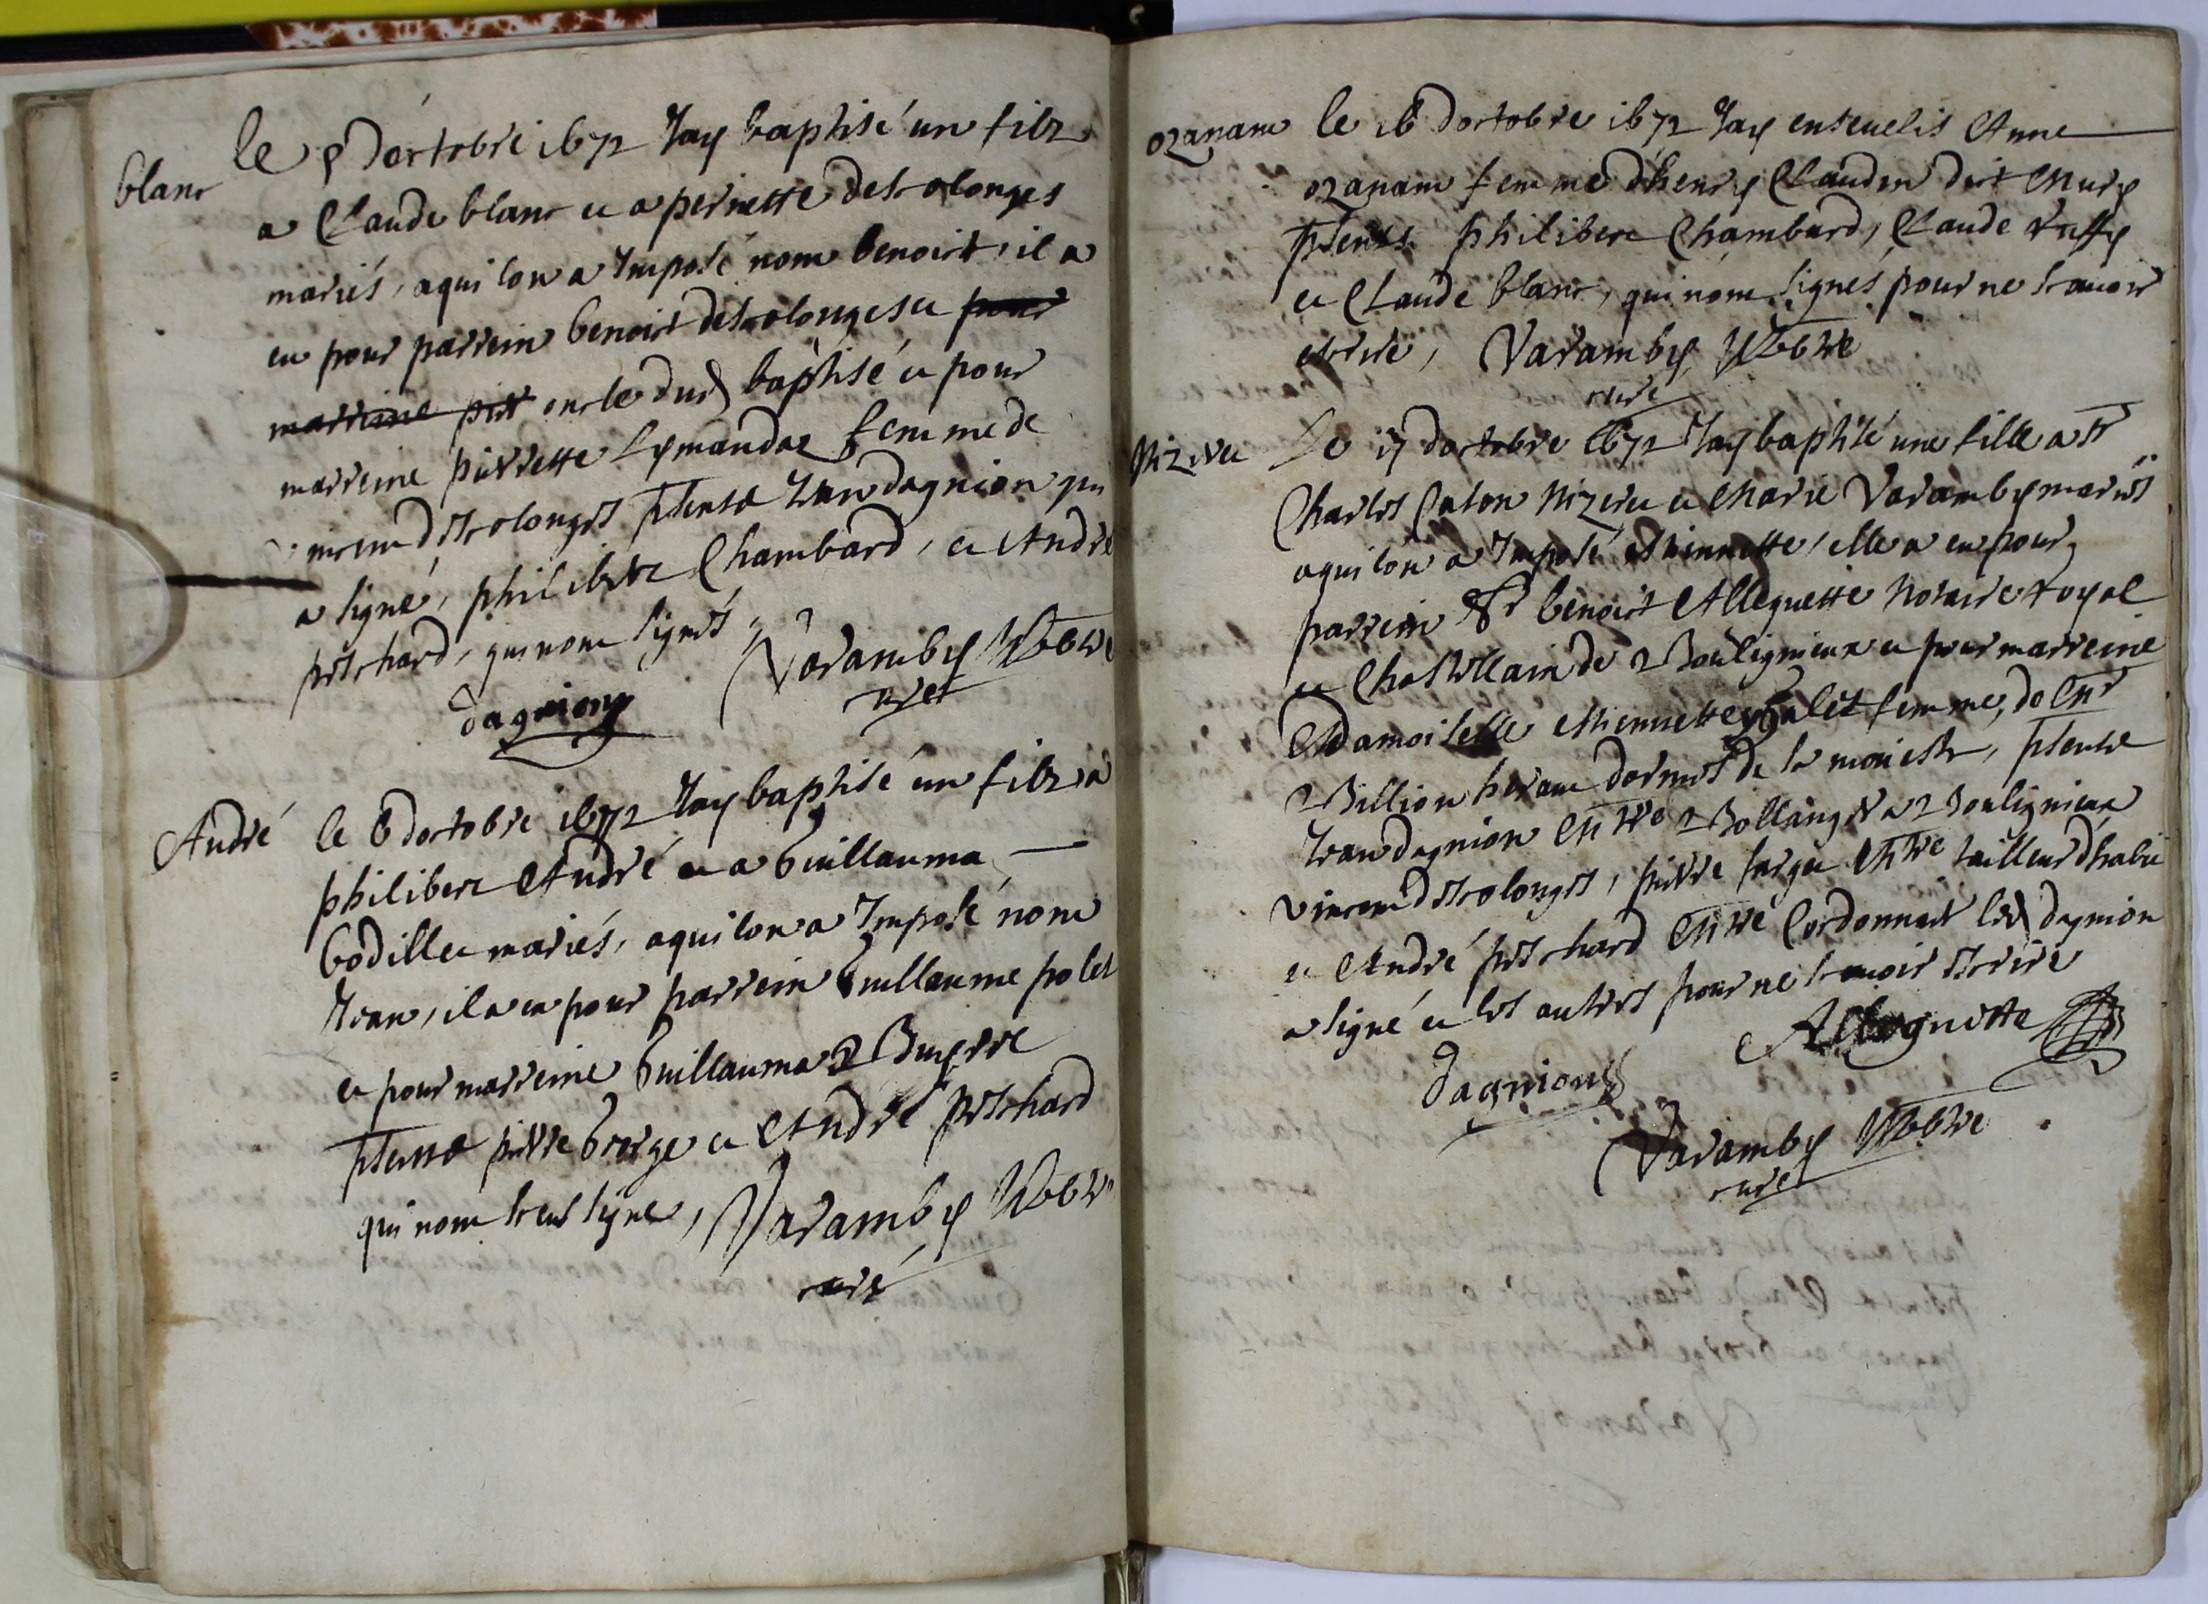 blanc
le 5 d'octobre 1672 Jay baptisé un filz
a Claude blanc et a pernette descolonges
mariés, aqui lon a Imposé nom benoict, il a
eu pour parrein benoict descolonges et pour
marreine oncle dud baptisé et pour
marreine pierrette femme de
descolonges pnts Jean dagnion qui
a signé, philibert Chambard, et André
peschard, qui nont signés,
Varamby
dagnion curé
André
le 6 doctobre 1672 Jay baptisé un filz a
philibert André et a Guillauma
Godillet mariés, aqui lon a Imposé nom
Jean, il a eu pour parrein Guillaume polet
et pour marreine Guillauma
pnts pierre George et André peschard
qui nont sceu signe, Varamby
curé
ozanam
le 16 doctobre 1672 Jay ensevelis Anne
ozanam femme d'henry Claudin dict Mury
pnts philibert Chambard, Claude
et Claude blanc, qui nont signés pour ne scavoir
escrire, Varamby
curé
Nizeret
Le 17 doctobre 1672 Jay baptisé une fille a Sr
Charles Caton Nizeret et Marie Varamby mariés
aqui lon a Imposé Estiennette, elle a eu pour
parrein Sr benoict Alleguette Notaire Royal
et Chastellain de Bouligneux et pour marreine
Damoiselle Estiennette femme de Mr
Billion de la monestr, pnts
Jean dagnion Mtre Bollanger a Bouligneux
vincend descolonges, pierre Mtre tailleur d'habit
et André peschard Mtre Cordonnier led dagnion
a signé et les autres pour ne scavoir escrire
Alleguette
dagnion
Varamby
curé